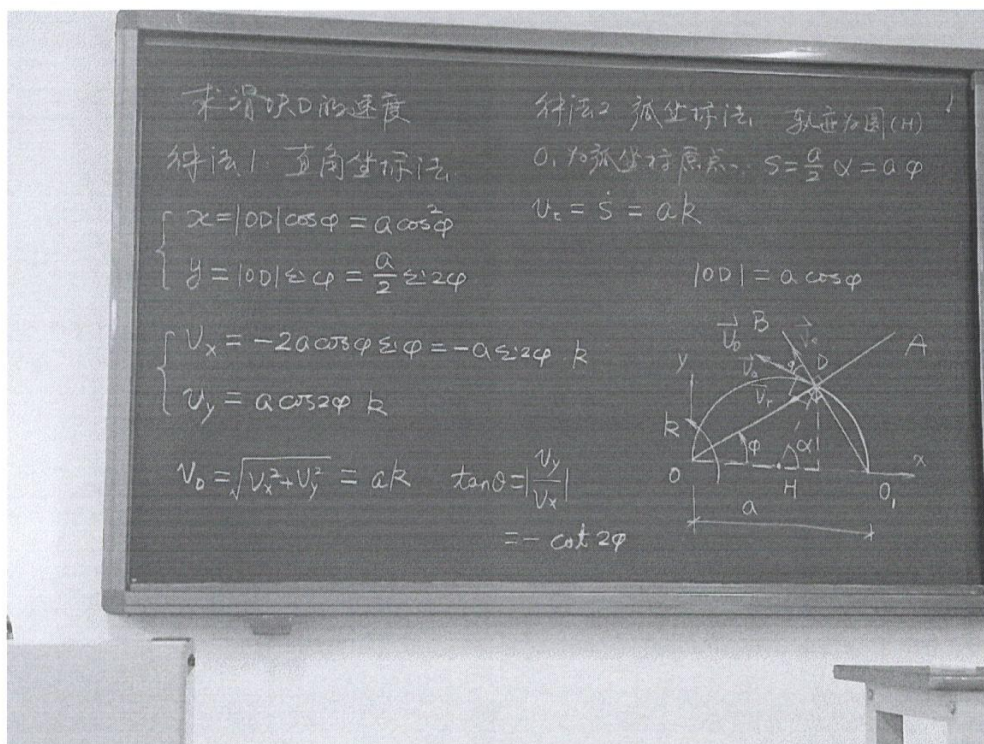 求滑块D的速度
解法1: 直角坐标法
x=|OD|cosφ=a cos²φ
y=|OD|sinφ=a/2 sin2φ
Vx=-2a cosφ sinφ=-a sin2φ k
Vy=a cos2φ k
V_D=√(Vx²+Vy²)=ak
tanθ=|Vy/Vx|
=-cot2φ
解法2 弧坐标法, 轨迹为圆(H)
O₁为弧坐标原点, S=a/2 α=aφ
V_τ=Ṡ=ak
|OD|=a cosφ
B
A
D
y
k
φ
α
x
O
H
O₁
a